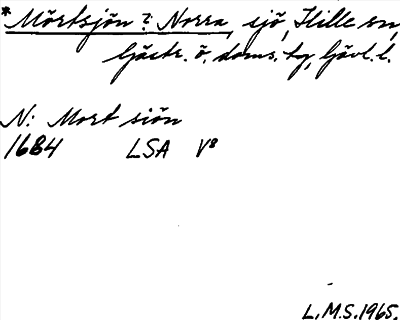 * Mörtsjön ? Norra, sjö, Hille sn,
Gästr. ö. doms. tg, Gävl. l.
N: Mort siön
1684 LSA V8
L.M.S. 1965.